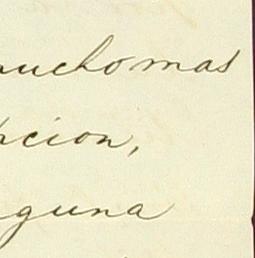 mucho mas
pcion,
guna